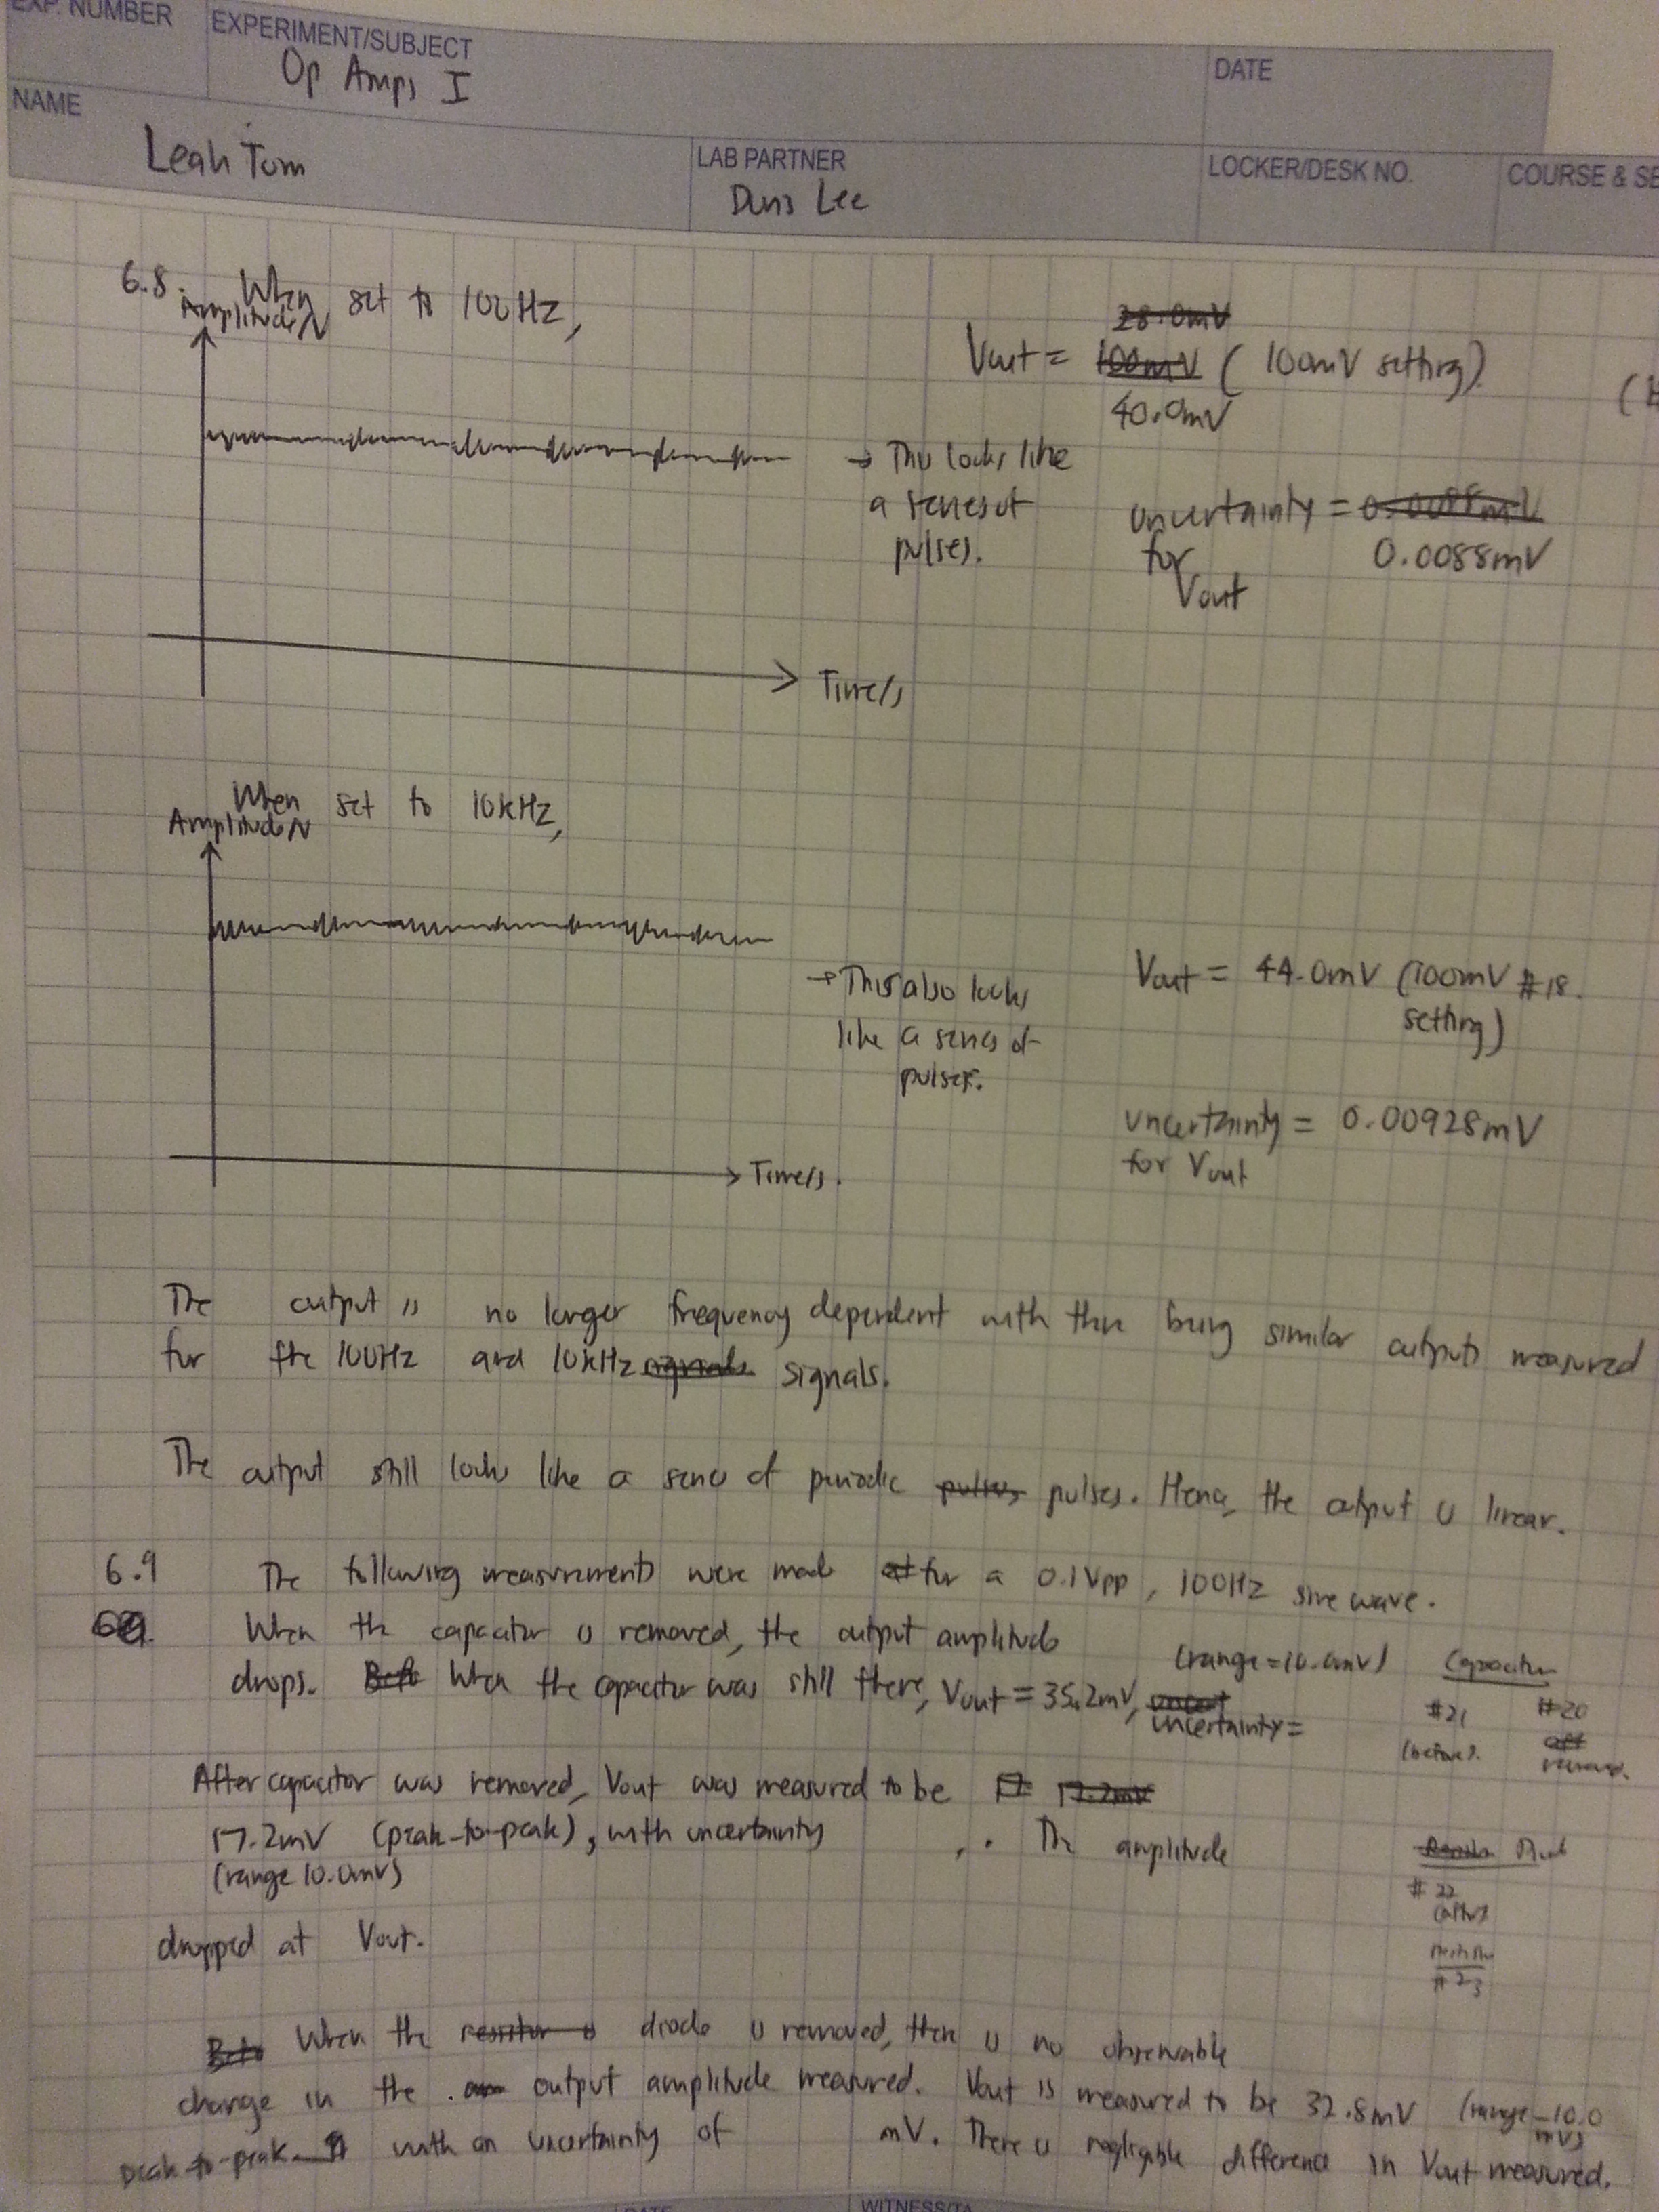 EXP. NUMBER
EXPERIMENT/SUBJECT
Op Amps I
DATE
NAME
Leah Tom
LAB PARTNER
Lee
LOCKER/DESK NO.
COURSE & SE
6.8. When set to 100Hz,
Amplitude/V
28.0mV
Vout = 100mV (100mV setting)
40.0mV
→ This looks like
a series of
pulses.
uncertainty = 0.0088mV
for 0.0088mV
Vout
Time/s
When set to 10kHz,
Amplitude/V
→ This also looks
like a series of
pulses.
Vout = 44.0mV (100mV #18.
setting)
uncertainty = 0.00928mV
for Vout
Time/s.
The output is no longer frequency dependent with there being similar outputs measured
for the 100Hz and 10kHz signals signals.
The output still looks like a series of periodic pulses, pulses. Hence, the output is linear.
6.9 The following measurements were made at for a 0.1Vpp, 100Hz sine wave.
When the capacitor is removed, the output amplitude
drops. Befo When the capacitor was still there, Vout = 35.2mV, uncert
(range=10.0mV)
uncertainty=
Capacitor
#21 #20
(before). aft
remove.
After capacitor was removed, Vout was measured to be 17 17.2mV
17.2mV (peak-to-peak), with uncertainty , . The amplitude
(range 10.0mV)
dropped at Vout.
# 22
(after)
# 23
Befo When the resistor is diode is removed, there is no observable
change in the output amplitude measured. Vout is measured to be 32.8mV (range=10.0
mV)
peak-to-peak. with an uncertainty of mV. There is negligible difference in Vout measured.
DATE
WITNESS/TA